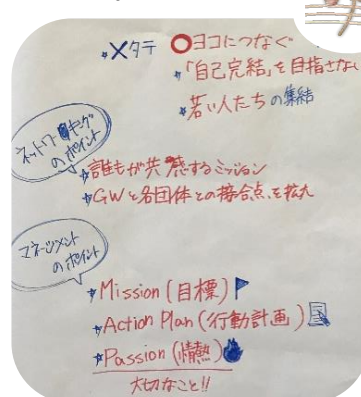 ×タテ ○ヨコにつなぐ
「自己完結」を目指さない
若い人たちの集結
ネットワーキング
のポイント
誰もが共感するミッション
GWと各団体との接合点を拡大
マネージメント
のポイント
Mission(目標)
Action Plan(行動計画)
Passion(情熱)
大切なこと!!